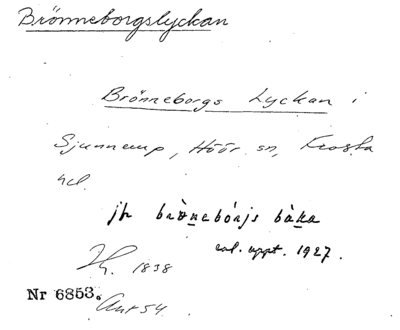 Brönneborgslyckan
Brönneborgs Lyckan i
Sjunnerup, Höör sn, Frosta
hd
jfr brònebórjs bàka
enl. uppt. 1927.
1838
Nr 6853.
Ant 54